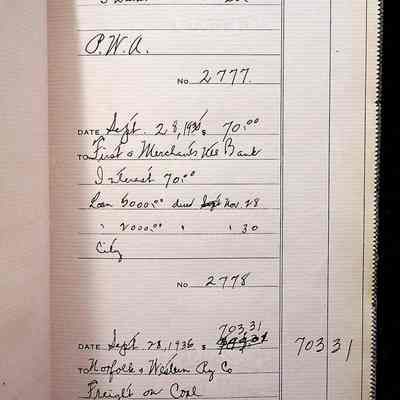 P.W.A.
No 2777.
DATE Sept. 28, 1936 $ 70.00
TO First & Merchants Nat Bank
Interest 70.00
Loan 5000.00 due Nov. 28
" 2000.00 " " 30
City
No 2778
703.31
DATE Sept 28, 1936 $
703 31
TO Norfolk & Western Ry Co
Freight on Coal